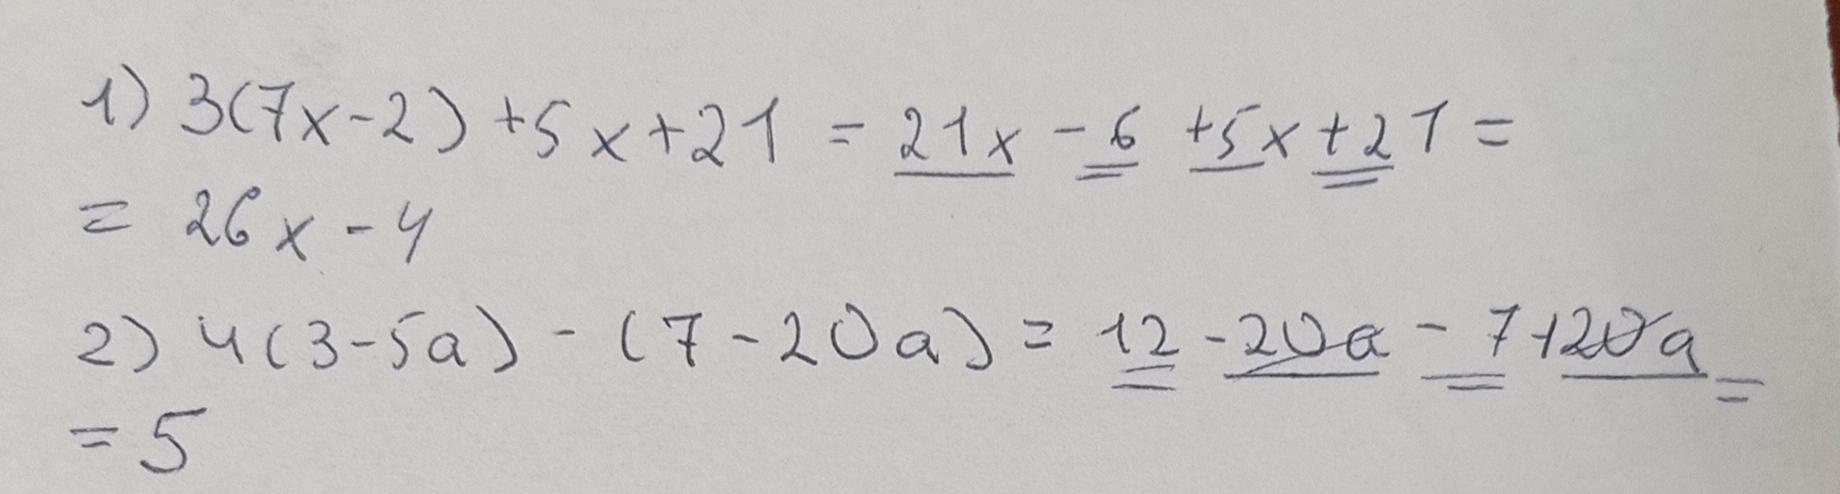 1) 3(7x-2)+5x+21 = 21x -6 +5x +21 =
= 26x - 4
2) 4(3-5a) - (7-20a) = 12 -20a - 7 +20a =
= 5